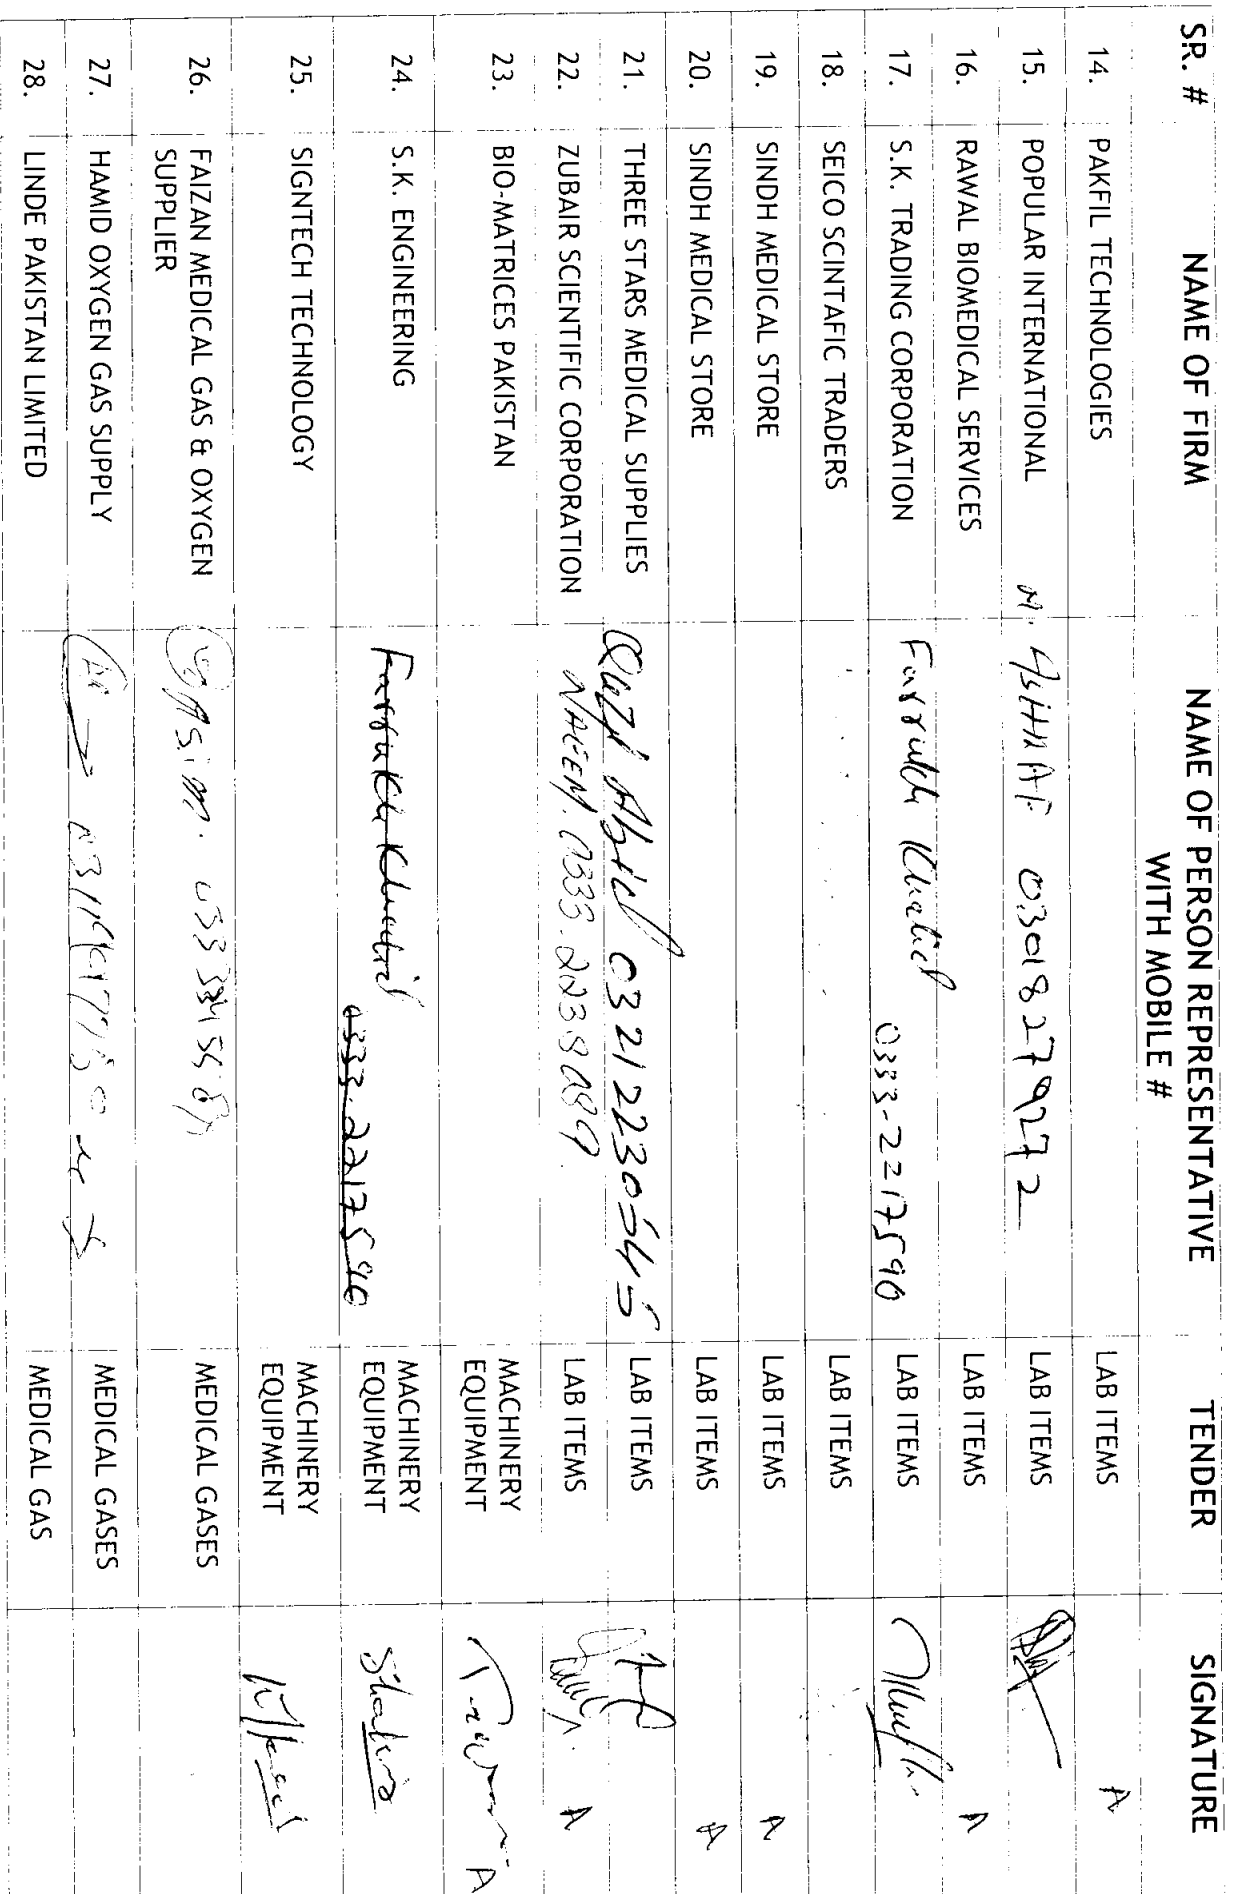 SR. # NAME OF FIRM NAME OF PERSON REPRESENTATIVE WITH MOBILE # TENDER SIGNATURE
14. PAKFIL TECHNOLOGIES LAB ITEMS A
15. POPULAR INTERNATIONAL M. 03018279272 LAB ITEMS
16. RAWAL BIOMEDICAL SERVICES LAB ITEMS A
17. S.K. TRADING CORPORATION Farrukh Khalid 0333-2217590 LAB ITEMS
18. SEICO SCINTAFIC TRADERS LAB ITEMS
19. SINDH MEDICAL STORE LAB ITEMS A
20. SINDH MEDICAL STORE LAB ITEMS A
21. THREE STARS MEDICAL SUPPLIES LAB ITEMS
22. ZUBAIR SCIENTIFIC CORPORATION NAEEM. LAB ITEMS A
23. BIO-MATRICES PAKISTAN MACHINERY EQUIPMENT A
24. S.K. ENGINEERING Farrukh Khalid 0333-2217590 MACHINERY EQUIPMENT
25. SIGNTECH TECHNOLOGY MACHINERY EQUIPMENT
26. FAIZAN MEDICAL GAS & OXYGEN SUPPLIER MEDICAL GASES
27. HAMID OXYGEN GAS SUPPLY MEDICAL GASES
28. LINDE PAKISTAN LIMITED MEDICAL GAS